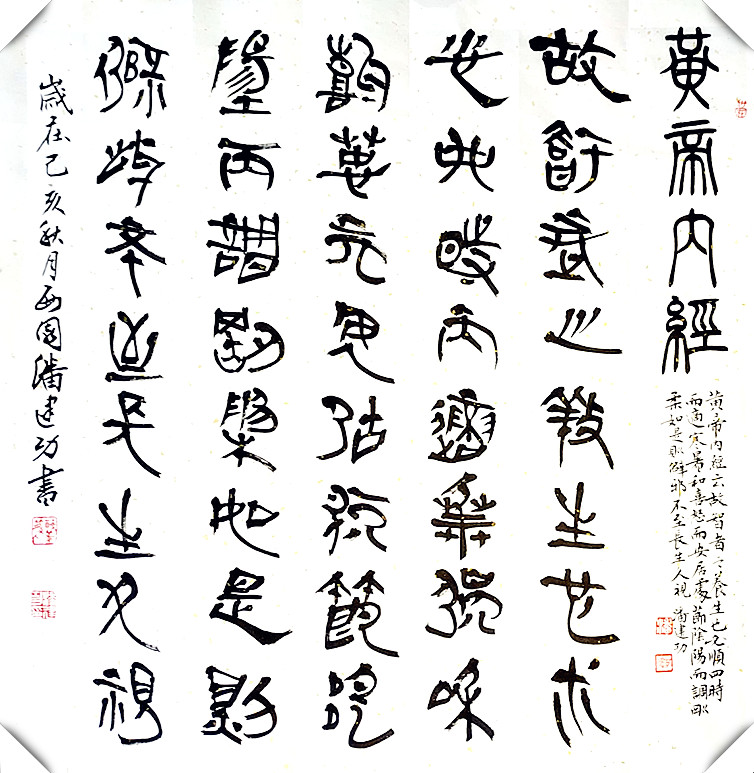 黃帝內經
黄帝内經云故智者之養生也必順四時
而適寒暑和喜怒而安居處節陰陽而調剛
柔如是則僻邪不至長生久視 潘建功
故智者之養生也必
順四時而適寒暑和
喜怒而安居處節陰
陽而調剛柔如是則
僻邪不至長生久視
歲在己亥秋月西園潘建功書